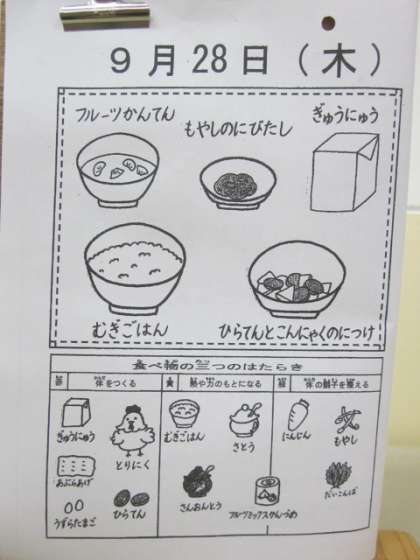 9月28日(木)
フルーツかんてん
もやしのにびたし
ぎゅうにゅう
むぎごはん
ひらてんとこんにゃくのにつけ
食べ物の三つのはたらき
体をつくる
熱や力のもとになる
体の調子を整える
ぎゅうにゅう
とりにく
あぶらあげ
うずらたまご
ひらてん
むぎごはん
さとう
さんおんとう
フルーツミックスかんづめ
にんじん
もやし
だいこんば